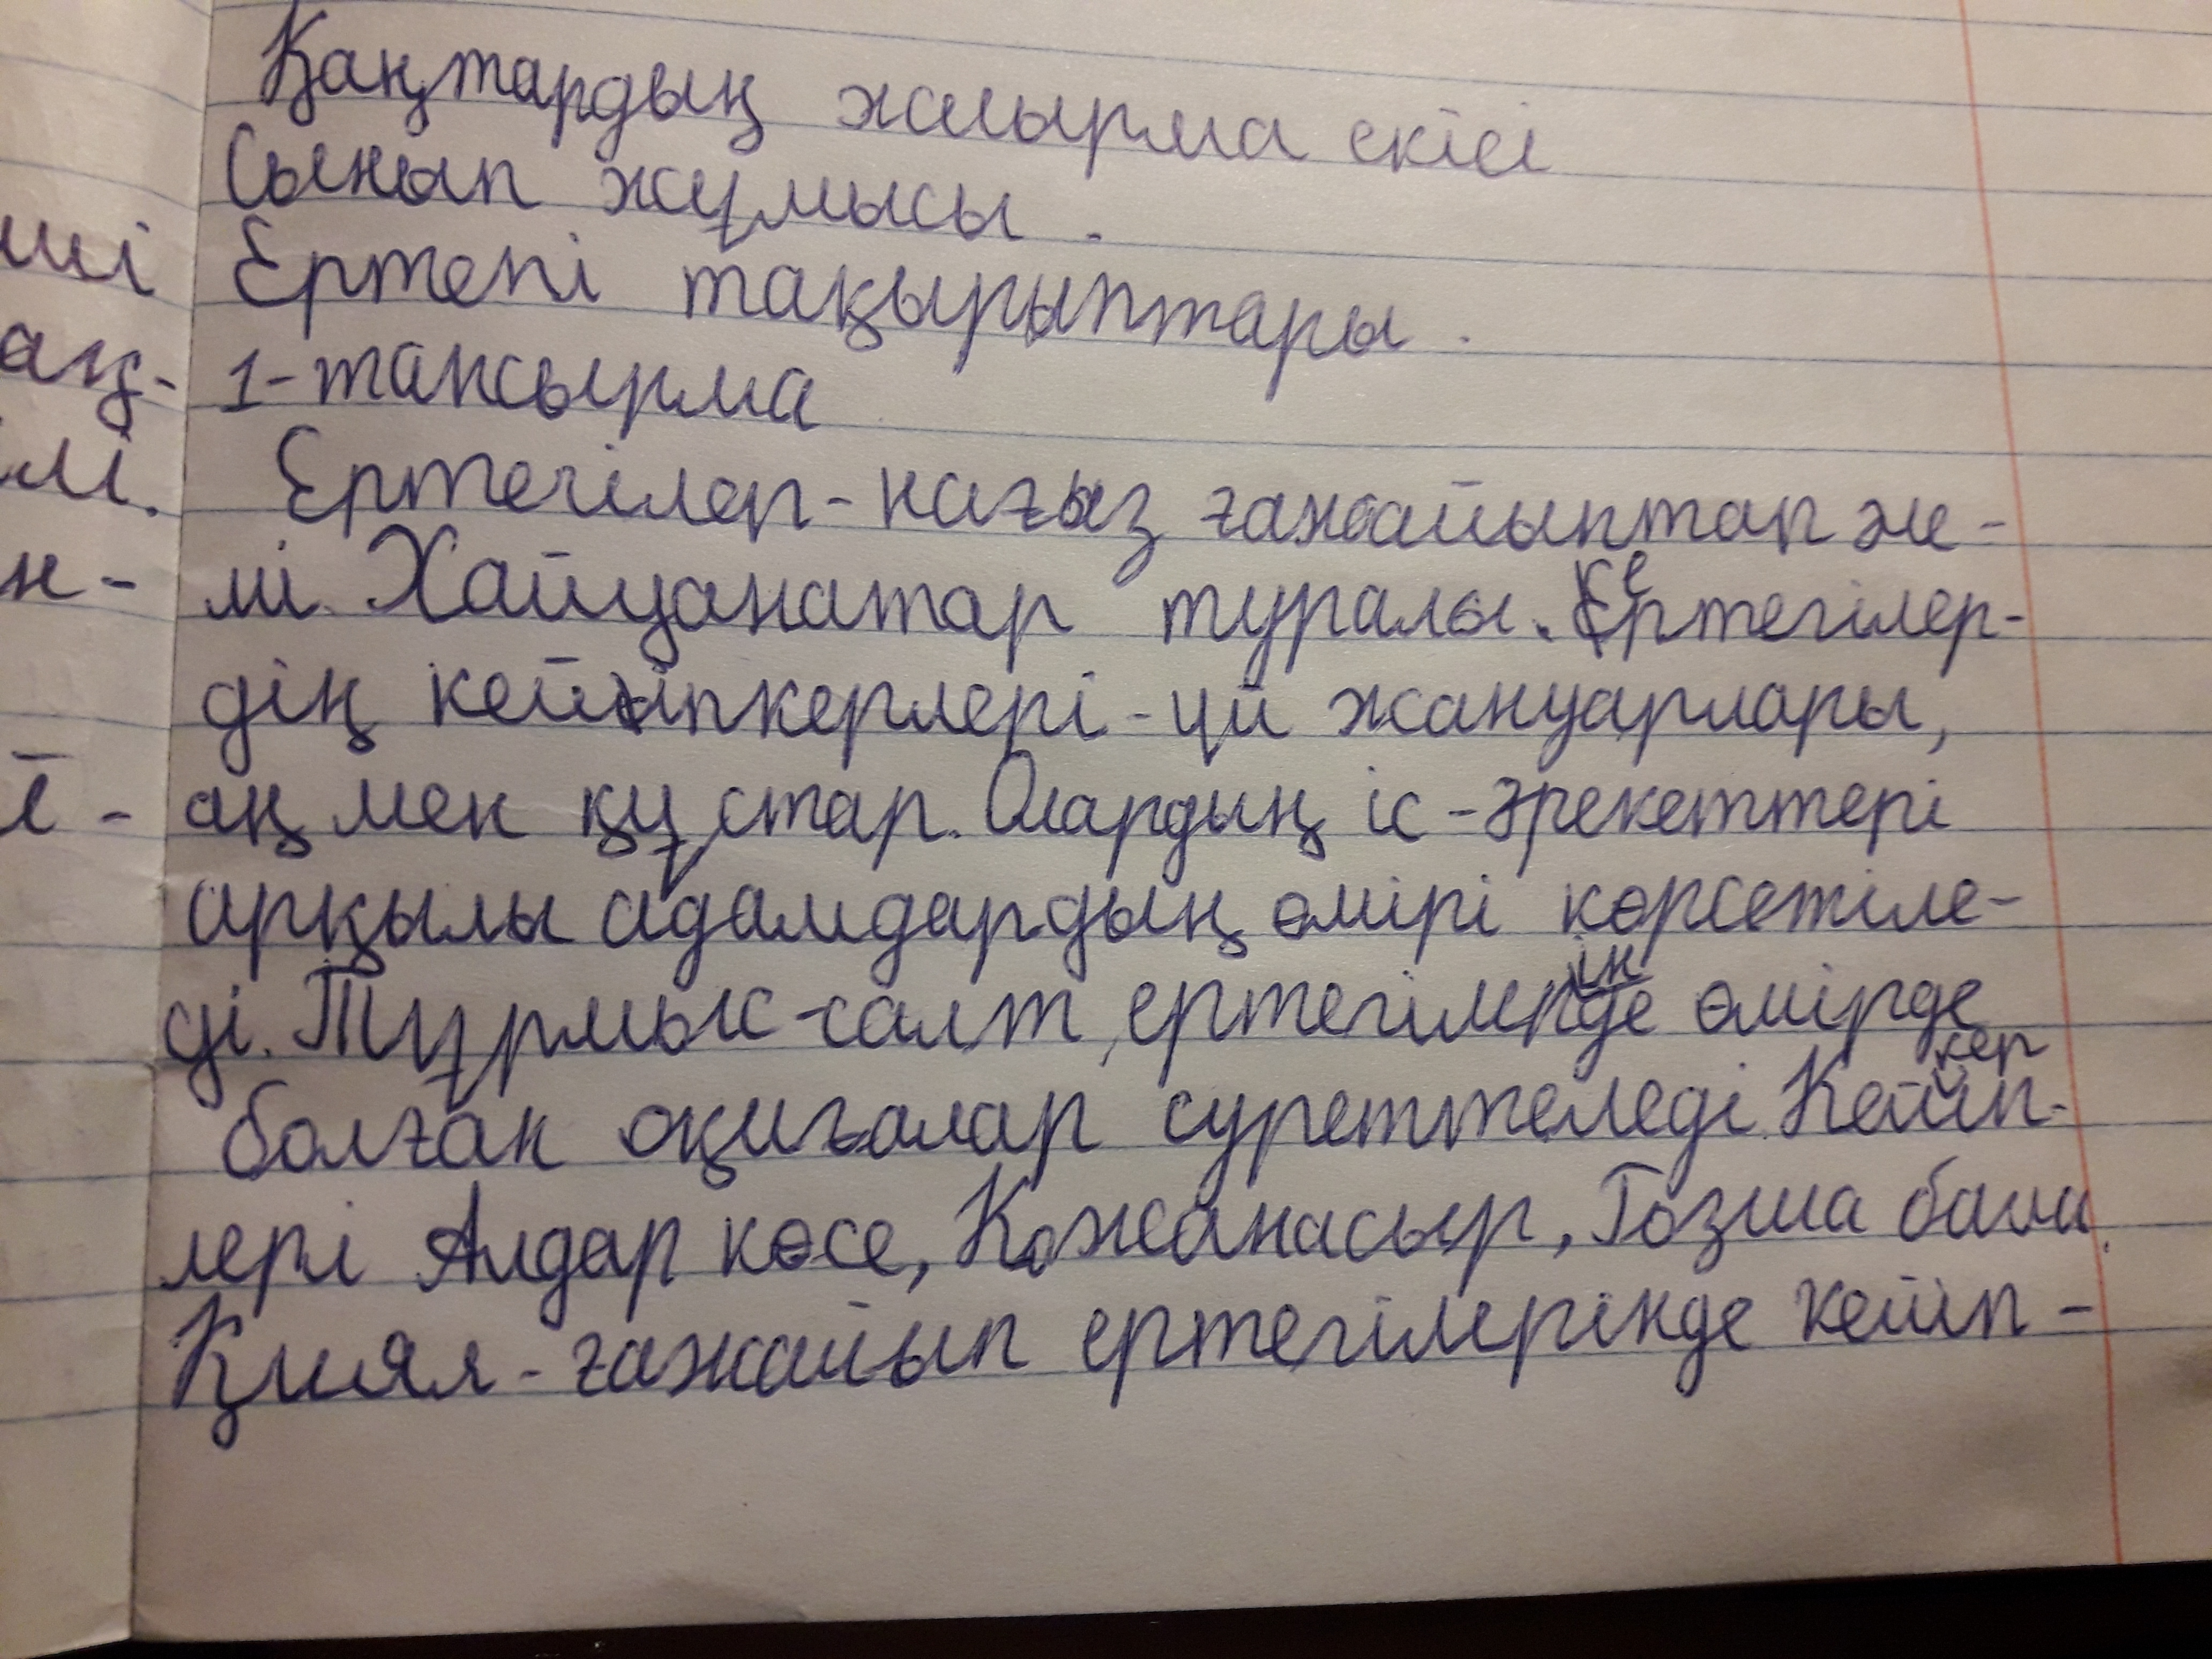 Қаңтардың жиырма екісі
Сынып жұмысы.
Ертегі тақырыптары.
1-тапсырма
Ертегілер - нағыз ғажайыптар әле-
мі. Хайуанатар туралы. Ертегілер-
дің кейіпкерлері - үй жануарлары,
аң мен құстар. Олардың іс-әрекеттері
арқылы адамдардың өмірі көрсетіле-
ді. Тұрмыс-салт ертегілерінде өмірде
болған оқиғалар суреттеледі. Кейіпкер-
лері Алдар көсе, Қожанасыр, Тазша бала.
Қиял-ғажайып ертегілерінде кейіп-